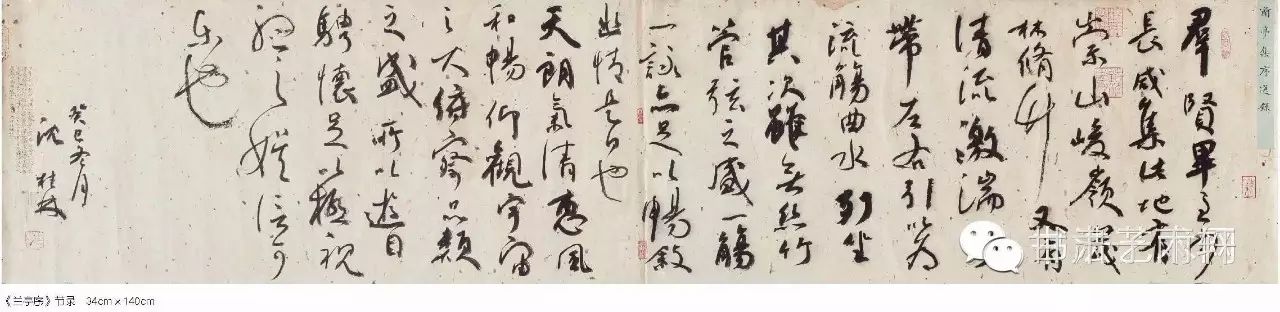 蘭亭集序選錄
羣賢畢至少
長咸集此地有
崇山峻嶺茂
林脩竹又有
清流激湍
帶左右引以為
流觴曲水列坐
其次雖無絲竹
管弦之盛一觴
一詠亦足以暢敘
幽情是日也
天朗氣清惠風
和暢仰觀宇宙
之大俯察品類
之盛所以遊目
騁懷足以極視
聽之娛信可
樂也
癸巳冬月
沈
《兰亭序》节录 34cm x 140cm